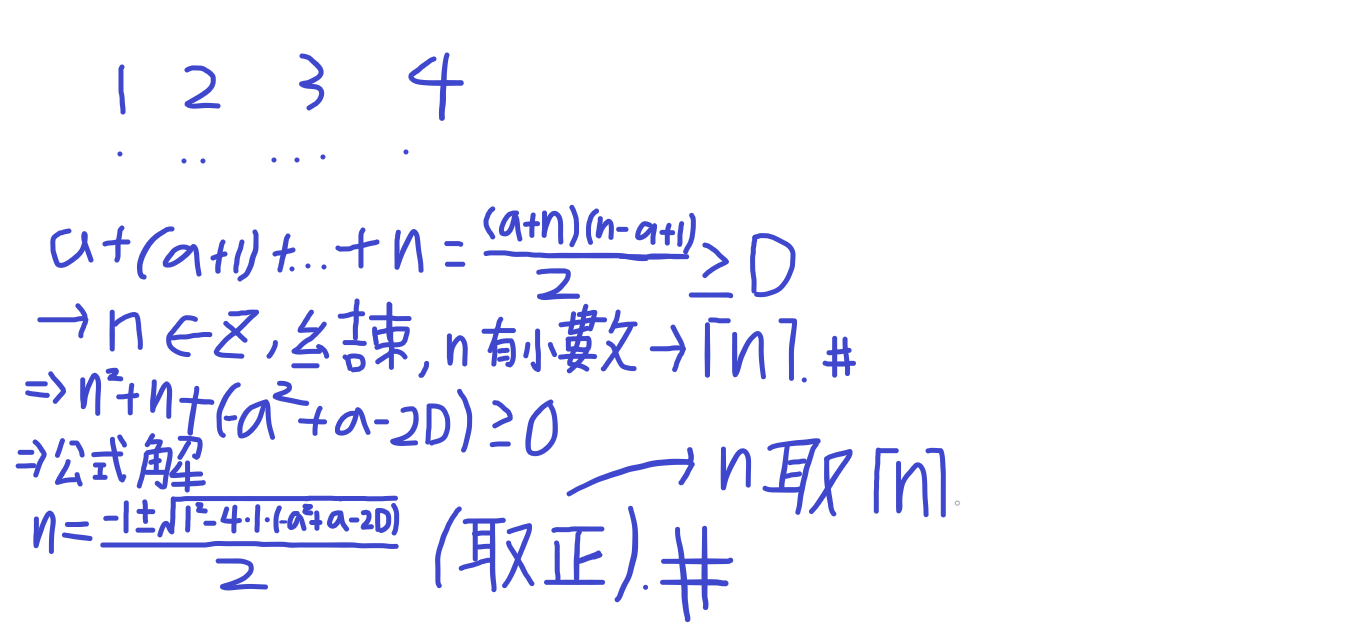 1 2 3 4
. .. ... .
a+(a+1)+...+n=\frac{(a+n)(n-a+1)}{2}≥D
→n∈Z,結束,n有小數→⌈n⌉.#
⇒n²+n+(-a²+a-2D)≥0
⇒公式解
n=\frac{-1±√(1²-4·1·(-a²+a-2D))}{2} (取正).#
→n取⌈n⌉。